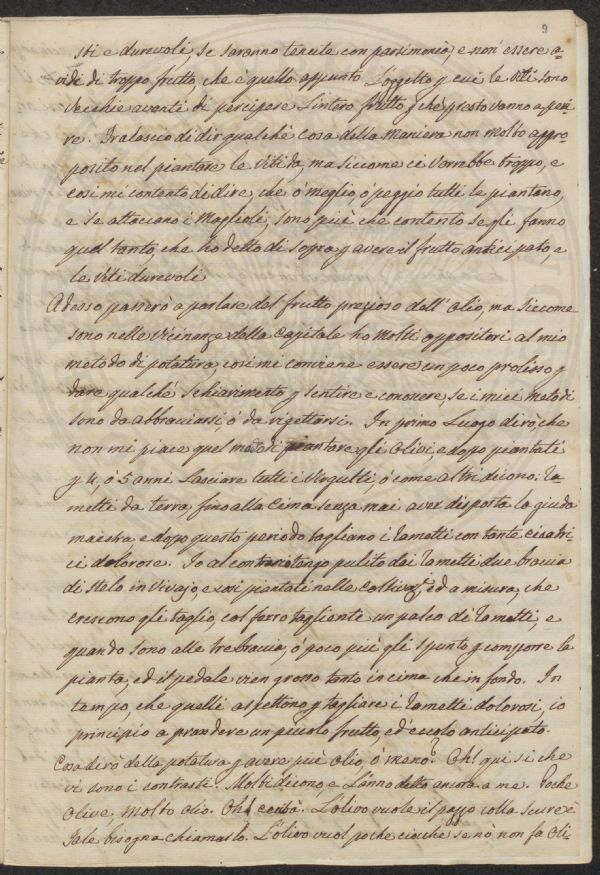 9
sti e durevoli, se saranno tenute con parsimonia, e non essere a-
vidi di troppo frutto, che è quello appunto l'oggetto p cui le Viti sono
Vecchie avanti di percipere l'intero frutto, che presto vanno a peri-
re. Tralascio di dir qualche cosa della Maniera non molto appro-
posito nel piantare le Viti da, ma siccome ci vorrebbe troppo, e
così mi contento di dire, che ò meglio ò peggio tutti le piantano,
e se attaccano i Maglioli, sono più che contento se gli fanno
quel tanto, che ho detto di sopra p avere il frutto anticipato, e
le Viti durevoli
Adesso passerò a parlare del frutto prezioso dell'Olio, ma siccome
sono nelle vicinanze della Capitale ho molti oppositori al mio
metodo di potatura, così mi conviene essere un poco prolisso p
dare qualche schiarimento p sentire e conoscere, se i miei metodi
sono da abbracciarsi, ò da rigettarsi. In primo Luogo dirò che
non mi piace quel metodo di piantare gli Olivi, e dopo piantati
p 4, ò 5 anni Lasciare tutti i Virgulti, ò come altri dicono: la-
metti da terra fino alla cima senza mai aver disposta la guida
maestra e dopo questo periodo tagliano i lametti con tante cicatri-
ci dolorose. Io al contrario tengo pulito dai lametti due braccia
di stelo in Vivajo, e così piantati nelle coltivaz.i, ed a misura, che
crescono gli taglio, col ferro tagliente un palco di lametti, e
quando sono alle tre braccia, ò poco più gli spunto p comporre la
pianta, ed il pedale vien grosso tanto in cima che in fondo. In
tempo, che quelli aspettono p tagliare i lametti dolorosi, io
principio a prendere un piccolo frutto, ed eccolo anticipato.
Cosa dirò della potatura p avere più olio, ò meno? Oh! qui si che
vi sono i contrasti. Molti dicono, e l'anno detto ancora a me. Poche
Olive, molto olio. Oh! L'olivo vuole il pazzo colla scure è
tale bisogna chiamarlo. L'olivo vuol poche ciocche se nò non fa oli-